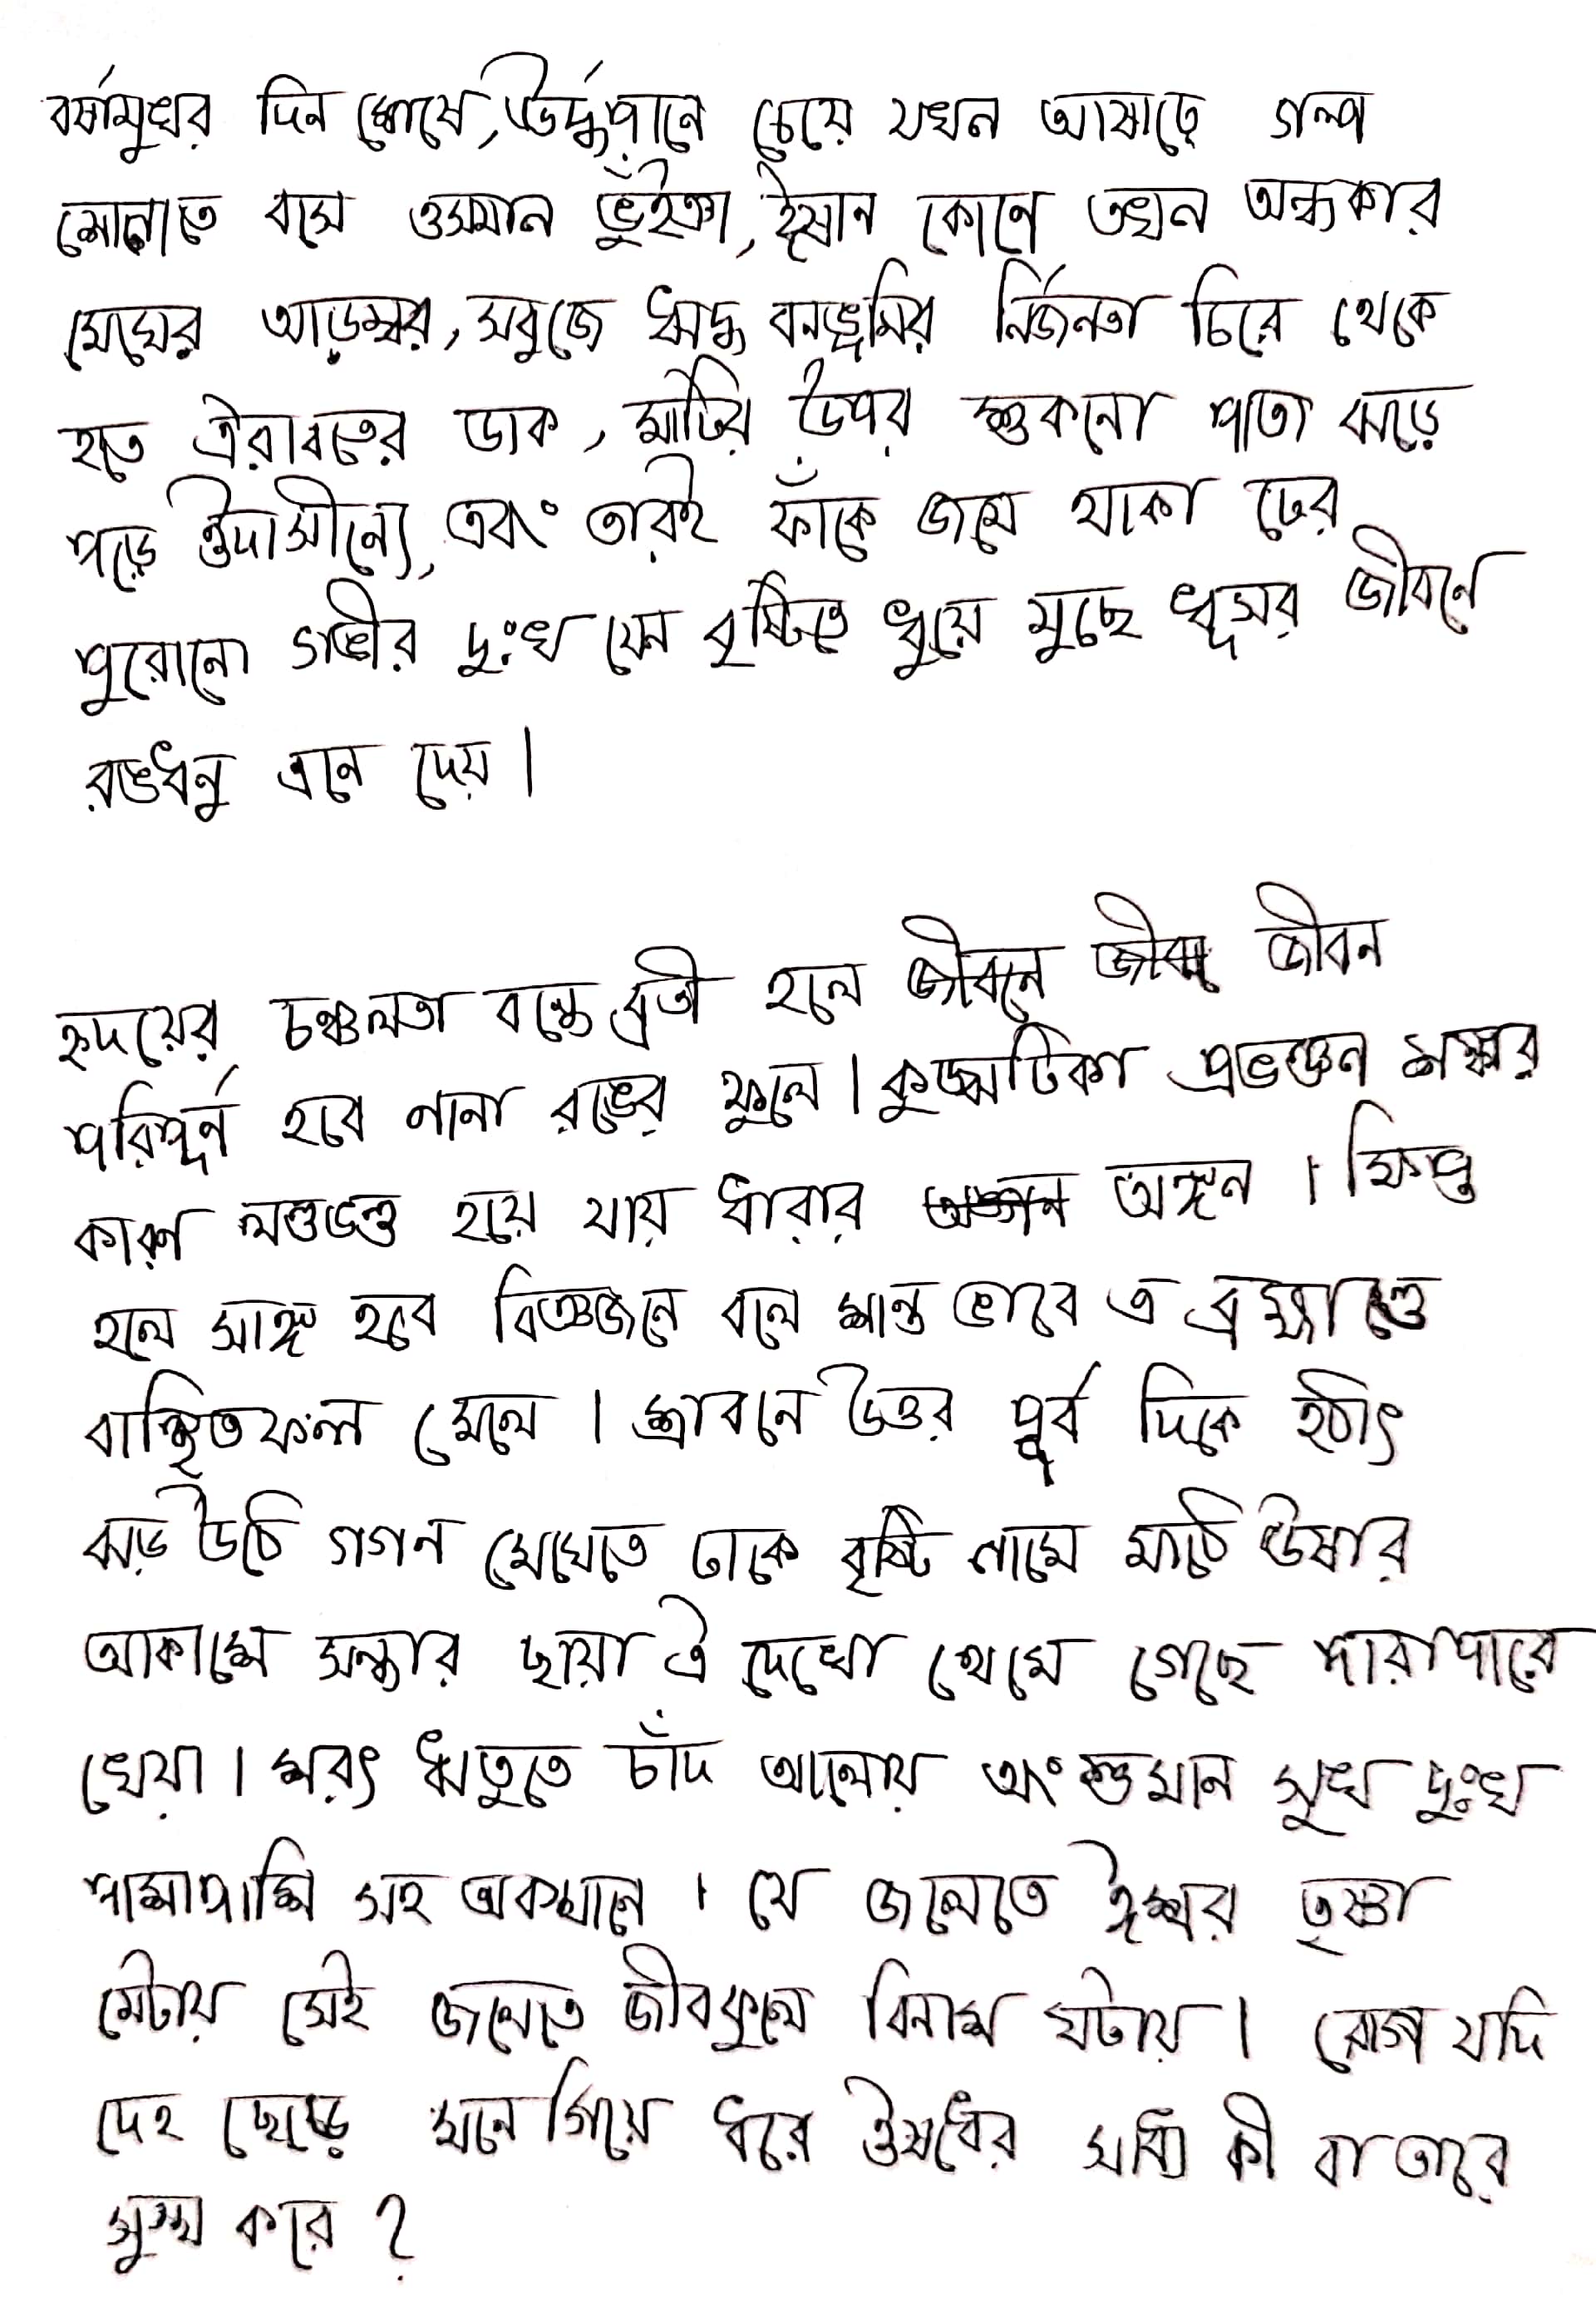 বর্ষামুখর দিন শেষে, ঊর্দ্ধপানে চেয়ে যখন আষাঢ়ে গল্প
শোনাতে বসে ওসমান ভুঁইঞা, ঈষান কোণে তখন অন্ধকার
মেঘের আড়ম্বর, সবুজে ঋদ্ধ বনভূমির নির্জনতা চিরে থেকে
হতে ঐরাবতের ডাক, মাটির উপর শুকনো পাতা ঝড়ে
পড়ে ঔদাসীন্যে, এবং তারই ফাঁকে জমে থাকা ঢের
পুরোনো গভীর দুঃখ যেন বৃষ্টিতে ধুয়ে মুছে ধূসর জীবনে
রঙধনু এনে দেয়।
হৃদয়ের চঞ্চলতা বন্ধে ব্রতী হলে জীবনে জীবন
পরিপূর্ন হবে নানা রঙের ফুলে। কুজ্ঝটিকা প্রভঞ্জন শঙ্কার
কারণ লণ্ডভণ্ড হয়ে যায় ধারার অঙ্গন। ক্ষিপ্ত
হলে সাঙ্গ হবে বিজ্ঞজনে বলে শান্ত ভাবে এ ব্রহ্মাণ্ডে
বাঞ্ছিতফল মেলে। শ্রাবনে উত্তর পূর্ব দিকে হঠাৎ
ঝড় উঠি গগন মেঘেতে ঢাকে বৃষ্টি নামে মাঠে ঊষার
আকাশে সন্ধার ছায়া ঐ দেখো থেমে গেছে পারাপারে
খেয়া। শরৎ ঋতুতে চাঁদ আলোয় অংশুমান সুখ দুঃখ
পাশাপাশি সহ অবস্থানে। যে জলেতে ঈশ্বর তৃষ্ণা
মেটায় সেই জলেতে জীবকুলে বিনাশ ঘটায়। রোগ যদি
দেহ ছেড়ে মনে গিয়ে ধরে ঔষধের সাধ্যি কী বা তারে
সুস্থ করে ?